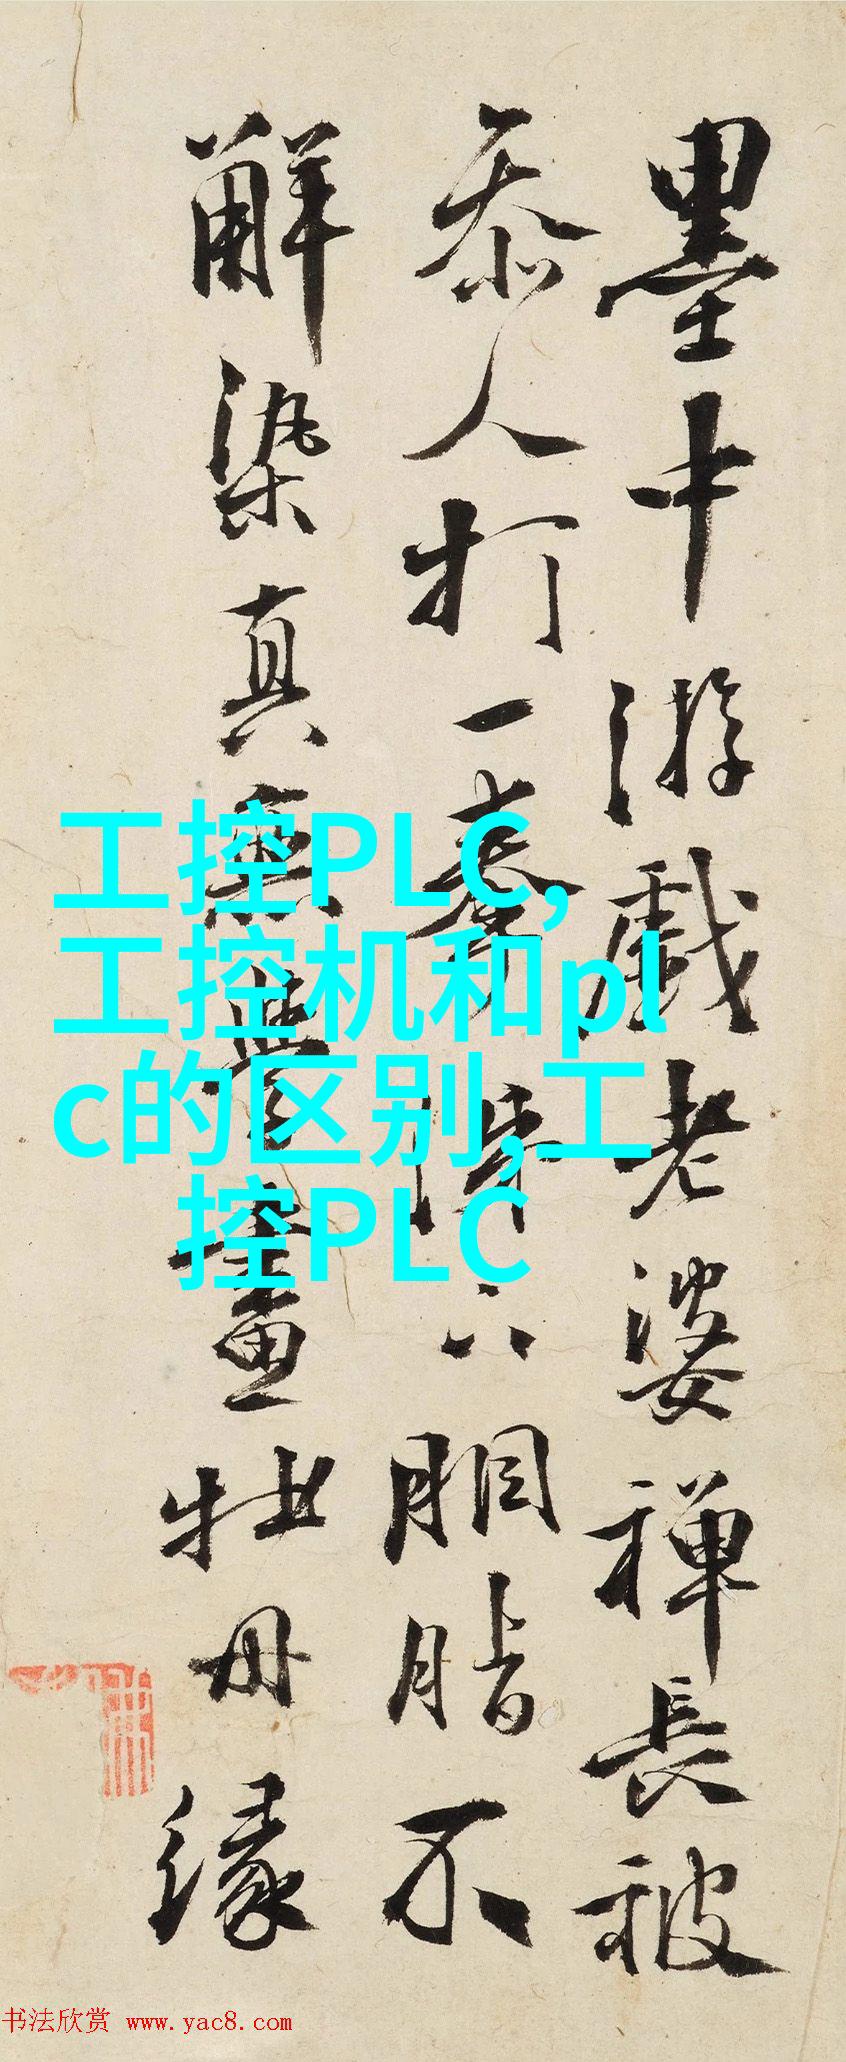 墨中游戲老婆禪長被
忝人打一拳涕下胭脂不
解染真無學畫牡丹緣
工控PLC,
工控机和pl
c的区别,工
控PLC
书法欣赏 www.yac8.com